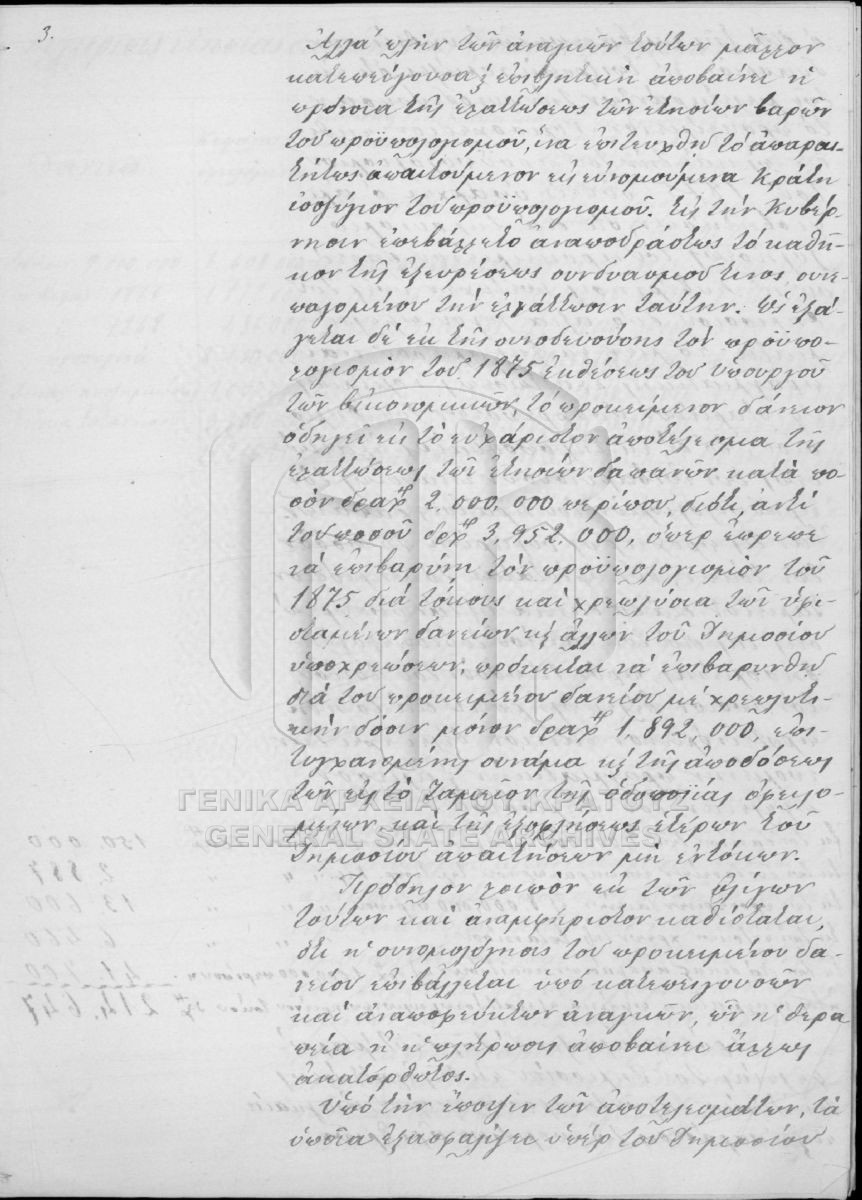 3.
Ἀλλὰ πλὴν τῶν ἀναγκῶν τούτων μᾶλλον
κατεπείγουσα ἐπιβλητικὴ ἀποβαίνει ἡ
πρόνοια τῆς ἐλαττώσεως τῶν ἐτησίων βαρῶν
τοῦ προϋπολογισμοῦ, ἵνα ἐπιτευχθῇ τὸ ἀπαραι-
τήτως ἀπαιτούμενον εἰς εὐνομούμενα Κράτη
ἰσοζύγιον τοῦ προϋπολογισμοῦ. Εἰς τὴν Κυβέρ-
νησιν ἐπεβάλλετο ἀναποδράστως τὸ καθῆ-
κον τῆς ἐξευρέσεως συνδυασμοῦ τινος, συνε-
παγομένου τὴν ἐλάττωσιν ταύτην. Ὡς ἐξά-
γεται δὲ ἐκ τῆς συνοδευούσης τὸν προϋπο-
λογισμὸν τοῦ 1875 ἐκθέσεως τοῦ ὑπουργοῦ
τῶν Οἰκονομικῶν, τὸ προκείμενον δάνειον
ὁδηγεῖ εἰς τὸ εὐχάριστον ἀποτέλεσμα τῆς
ἐλαττώσεως τῶν ἐτησίων δαπανῶν κατὰ πο-
σὸν δραχ. 2,000,000 περίπου, διότι, ἀντὶ
τοῦ ποσοῦ δρχ. 3,952,000, ὅπερ ἔπρεπε
νὰ ἐπιβαρύνῃ τὸν προϋπολογισμὸν τοῦ
1875 διὰ τόκους καὶ χρεωλύσια τῶν ὑφι-
σταμένων δανείων κ̀ ἄλλων τοῦ Δημοσίου
ὑποχρεώσεων, πρόκειται νὰ ἐπιβαρυνθῇ
διὰ τοῦ προκειμένου δανείου μὲ χρεωλυτι-
κὴν δόσιν μόνον δραχ. 1,892,000, ἐπι-
τυγχανομένης συνάμα κ̀ τῆς ἀποδόσεως
τῶν εἰς τὸ Ταμεῖον τῆς ὁδοποιΐας ὀφειλο-
μένων καὶ τῆς ἐξοφλήσεως ἑτέρων τοῦ
Δημοσίου ἀπαιτήσεων μὴ ἐντόκων.
Πρόδηλον λοιπὸν ἐκ τῶν ὀλίγων
τούτων καὶ ἀναμφήριστον καθίσταται,
ὅτι ἡ συνομολόγησις τοῦ προκειμένου δα-
νείου ἐπιβάλλεται ὑπὸ κατεπειγουσῶν
καὶ ἀναποφεύκτων ἀναγκῶν, ὧν ἡ θερα
πεία ἢ ἡ πλήρωσις ἀποβαίνει ἄλλως
ἀκατόρθωτος.
Ὑπὸ τὴν ἔποψιν τῶν ἀποτελεσμάτων, τὰ
ὁποῖα ἐξασφαλίζει ὑπὲρ τοῦ Δημοσίου
ΓΕΝΙΚΑ ΑΡΧΕΙΑ ΤΟΥ ΚΡΑΤΟΥΣ
GENERAL STATE ARCHIVES